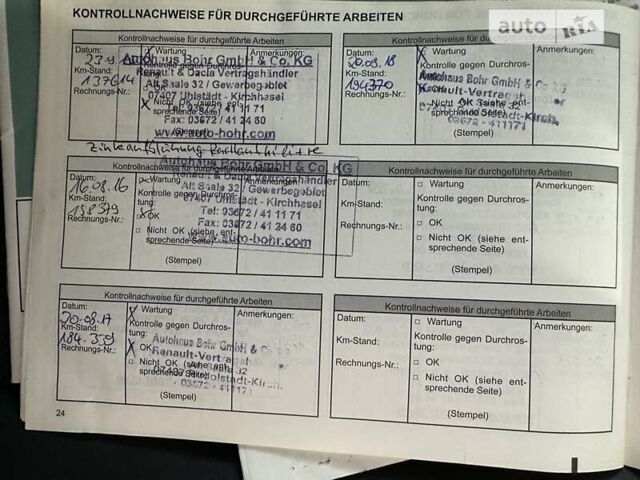 KONTROLLNACHWEISE FÜR DURCHGEFÜHRTE ARBEITEN
auto RIA
Kontrollnachweise für durchgeführte Arbeiten
Datum:
Wartung
Anmerkungen:
Kontrolle gegen Durchros-
Km-Stand:
137614
Rechnungs-Nr.:
Nicht OK (siehe ent-
(Stempel)
Autohaus Bohr GmbH & Co. KG
Renault & Dacia Vertragshändler
Alt Saale 32 / Gewerbegebiet
07407 Uhlstädt - Kirchhasel
Tel: 03672 / 41 11 71
Fax: 03672 / 41 24 60
www.auto-bohr.com
Kontrollnachweise für durchgeführte Arbeiten
Datum:
20.09.18
Wartung
Anmerkungen:
Km-Stand:
194370
Rechnungs-Nr.:
OK
(Stempel)
Autohaus Bohr GmbH &
Renault-Vertrags
03672 - 411171
Kontrollnachweise für durchgeführte Arbeiten
Datum:
16.08.16
Wartung
Kontrolle gegen Durchros-
tung:
Km-Stand:
158379
Rechnungs-Nr.:
OK
Nicht OK (siehe ent-
sprechende Seite)
(Stempel)
Autohaus Bohr GmbH & Co. KG
Renault & Dacia Vertragshändler
Alt Saale 32 / Gewerbegebiet
07407 Uhlstädt - Kirchhasel
Tel: 03672 / 41 11 71
Fax: 03672 / 41 24 60
www.auto-bohr.com
Kontrollnachweise für durchgeführte Arbeiten
Datum:
Wartung
Anmerkungen:
Kontrolle gegen Durchros-
tung:
Km-Stand:
Rechnungs-Nr.:
OK
Nicht OK (siehe ent-
sprechende Seite)
(Stempel)
Kontrollnachweise für durchgeführte Arbeiten
Datum:
20.09.17
Wartung
Anmerkungen:
Kontrolle gegen Durchros-
tung:
Km-Stand:
184.359
Rechnungs-Nr.:
OK
Nicht OK (siehe ent-
sprechende Seite)
(Stempel)
Autohaus Bohr GmbH & C
Renault-Vertrag
03672 - 411171
Kontrollnachweise für durchgeführte Arbeiten
Datum:
Wartung
Anmerkungen:
Kontrolle gegen Durchros-
tung:
Km-Stand:
Rechnungs-Nr.:
OK
Nicht OK (siehe ent-
sprechende Seite)
(Stempel)
24